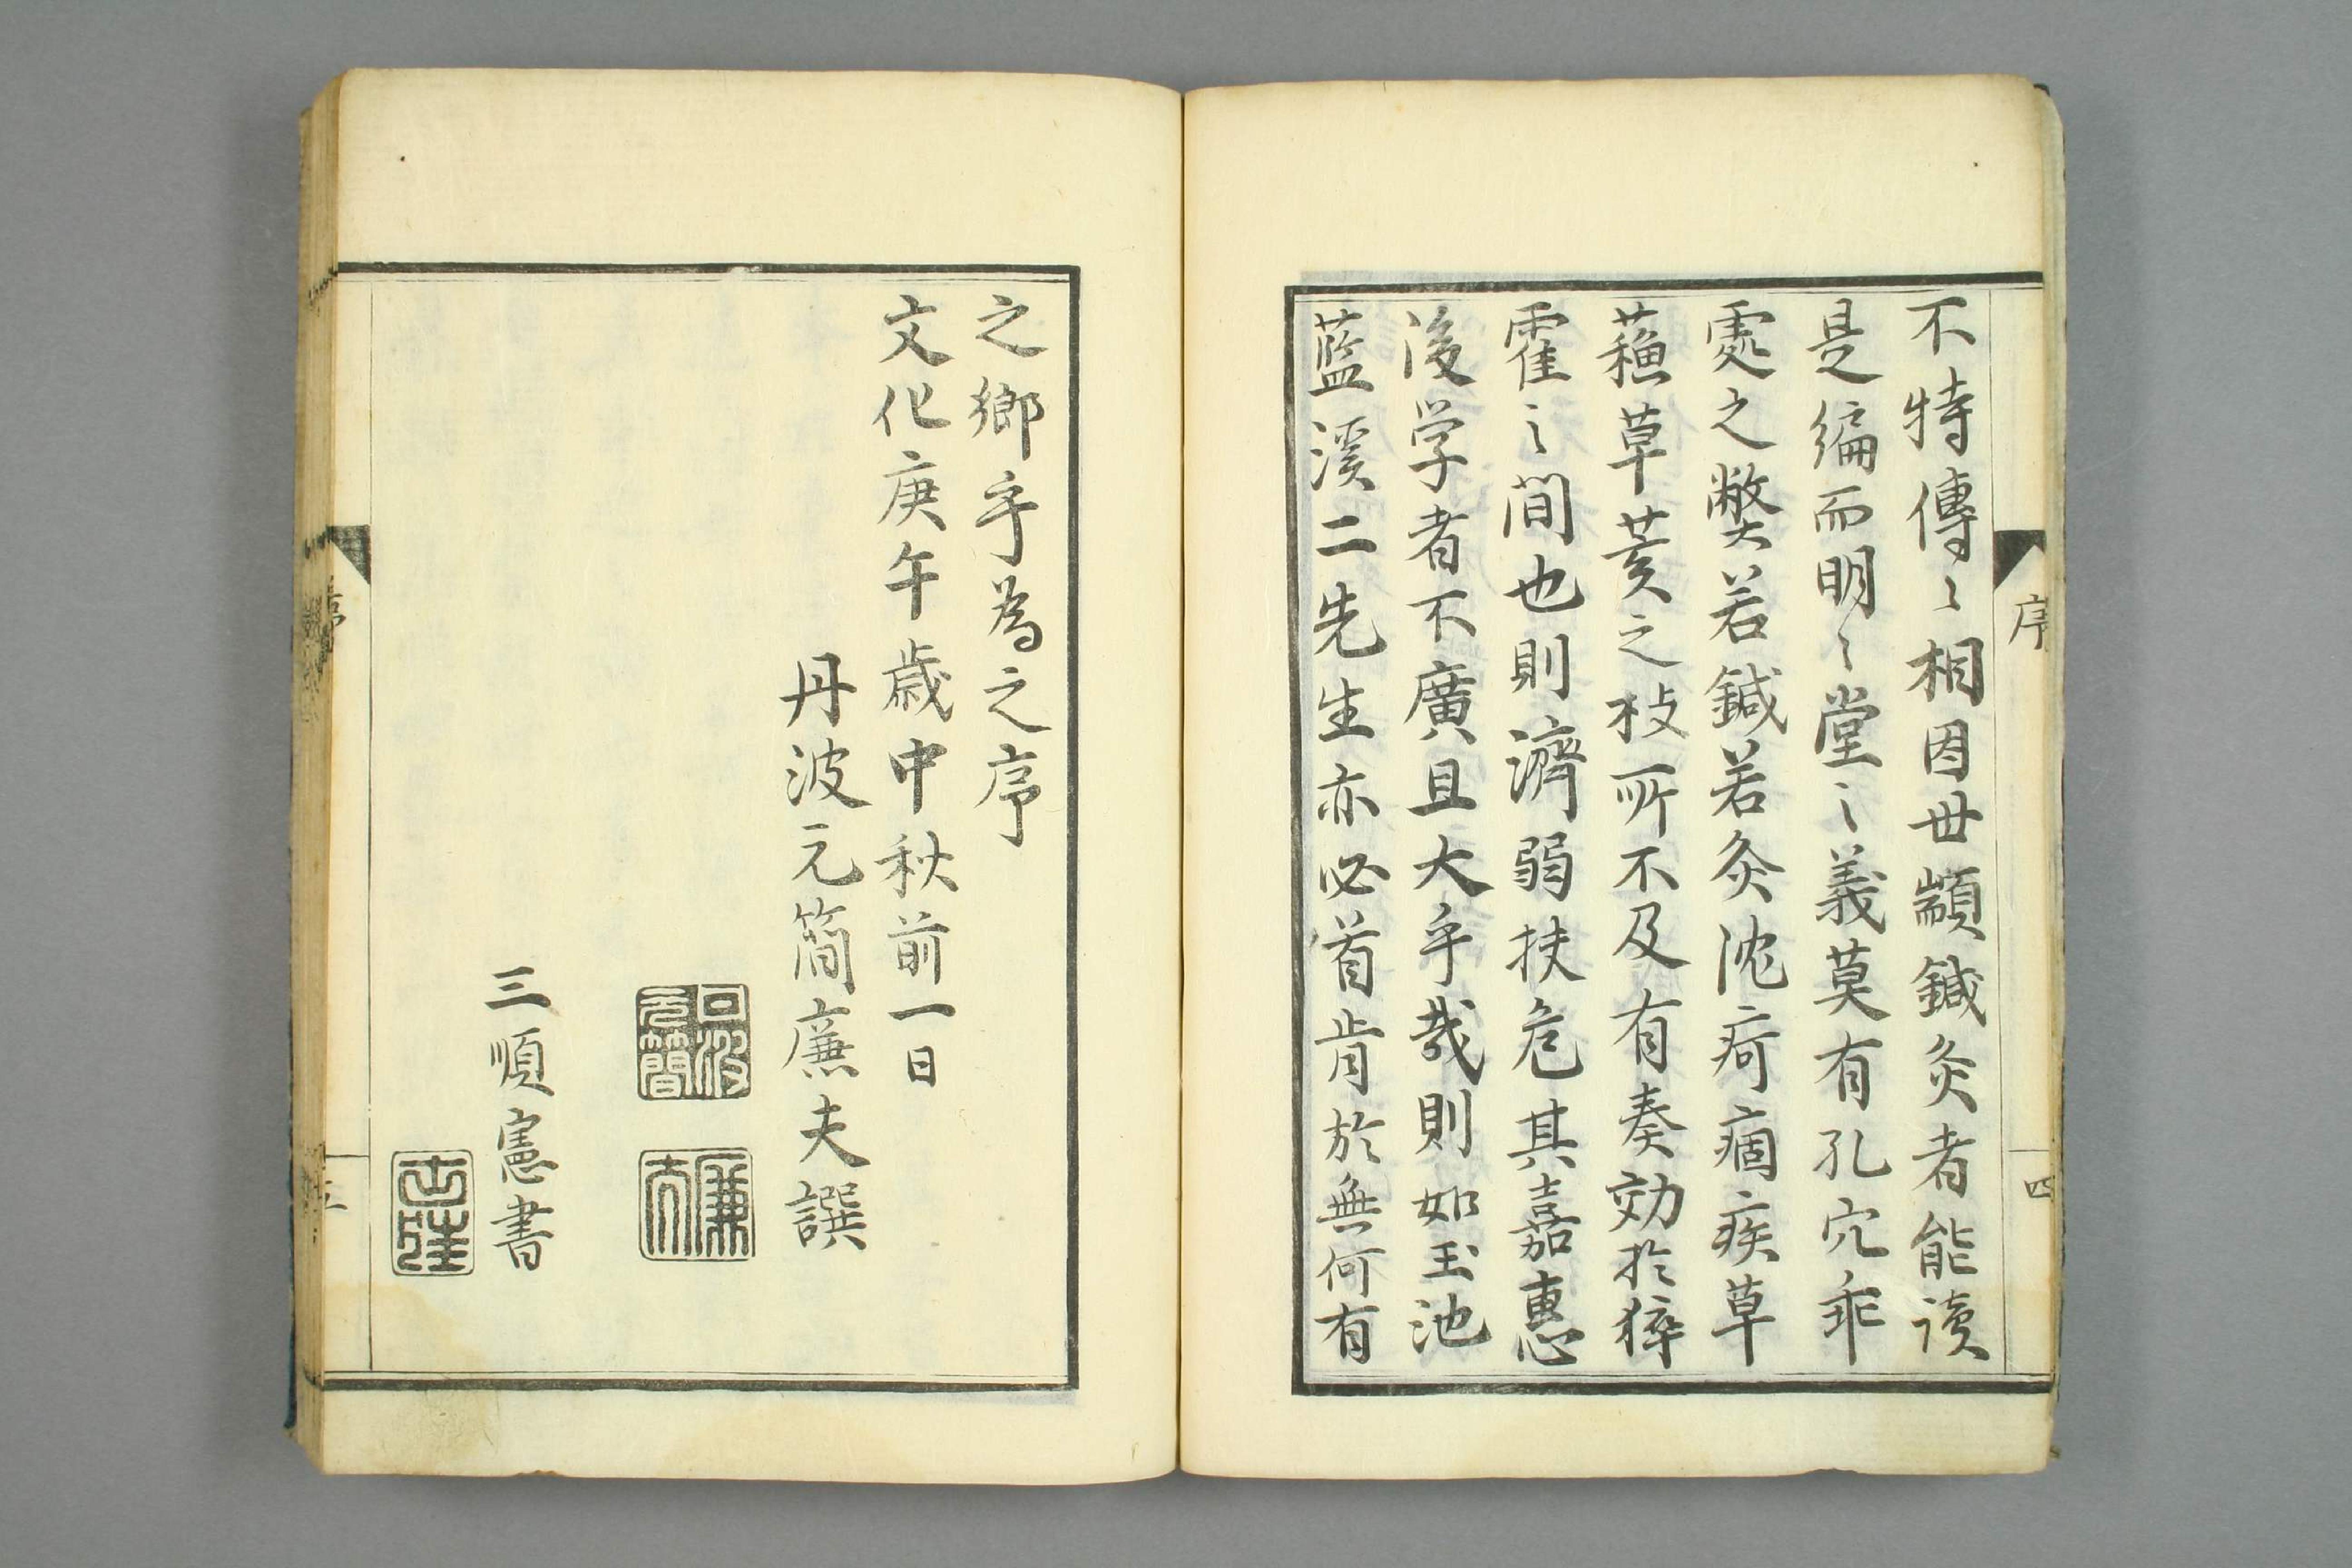 不特傳〻相因世顓鍼灸者能读
是編而明〻堂〻義莫有孔穴乖
處之弊若鍼若灸沈疴痼疾草
蘓草荄之枝所不及有奏効於猝
霍〻間也則濟弱扶危其嘉惠
後学者不廣且大乎哉則如玉池
藍溪二先生亦必首肯於無何有
之鄉乎為之序
文化庚午歲中秋前一日
丹波元簡廉夫譔
元簡
廉夫
三順憲書
序
四
序
五